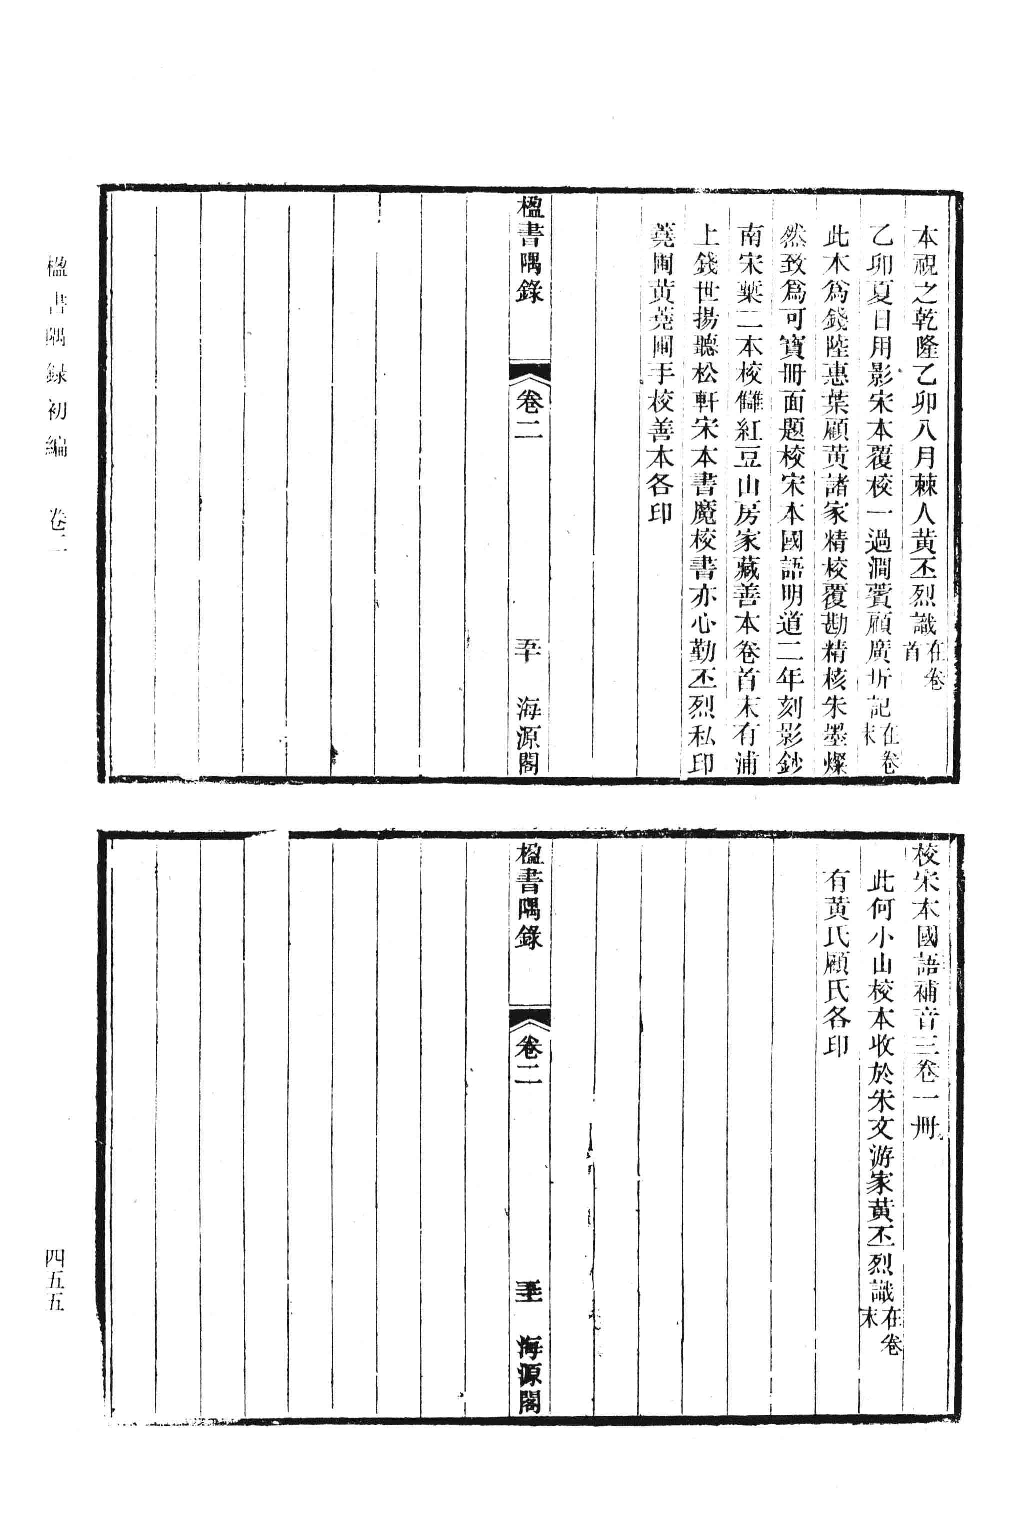 本視之乾隆乙卯八月棘人黃丕烈識在卷首
乙卯夏日用影宋本覆校一過澗薲顧廣圻記在卷末
此本爲錢陸惠葉顧黃諸家精校覆勘精核朱墨燦
然致爲可寶冊面題校宋本國語明道二年刻影鈔
南宋槧二本校讎紅豆山房家藏善本卷首末有浦
上錢世揚聽松軒宋本書魔校書亦心勤丕烈私印
蕘圃黃蕘圃手校善本各印
楹書隅錄
卷二
五十
海源閣
校宋本國語補音三卷一冊
此何小山校本收於朱文游家黃丕烈識在卷末
有黃氏顧氏各印
楹書隅錄
卷二
海源閣
楹書隅録初編
卷二
四五五